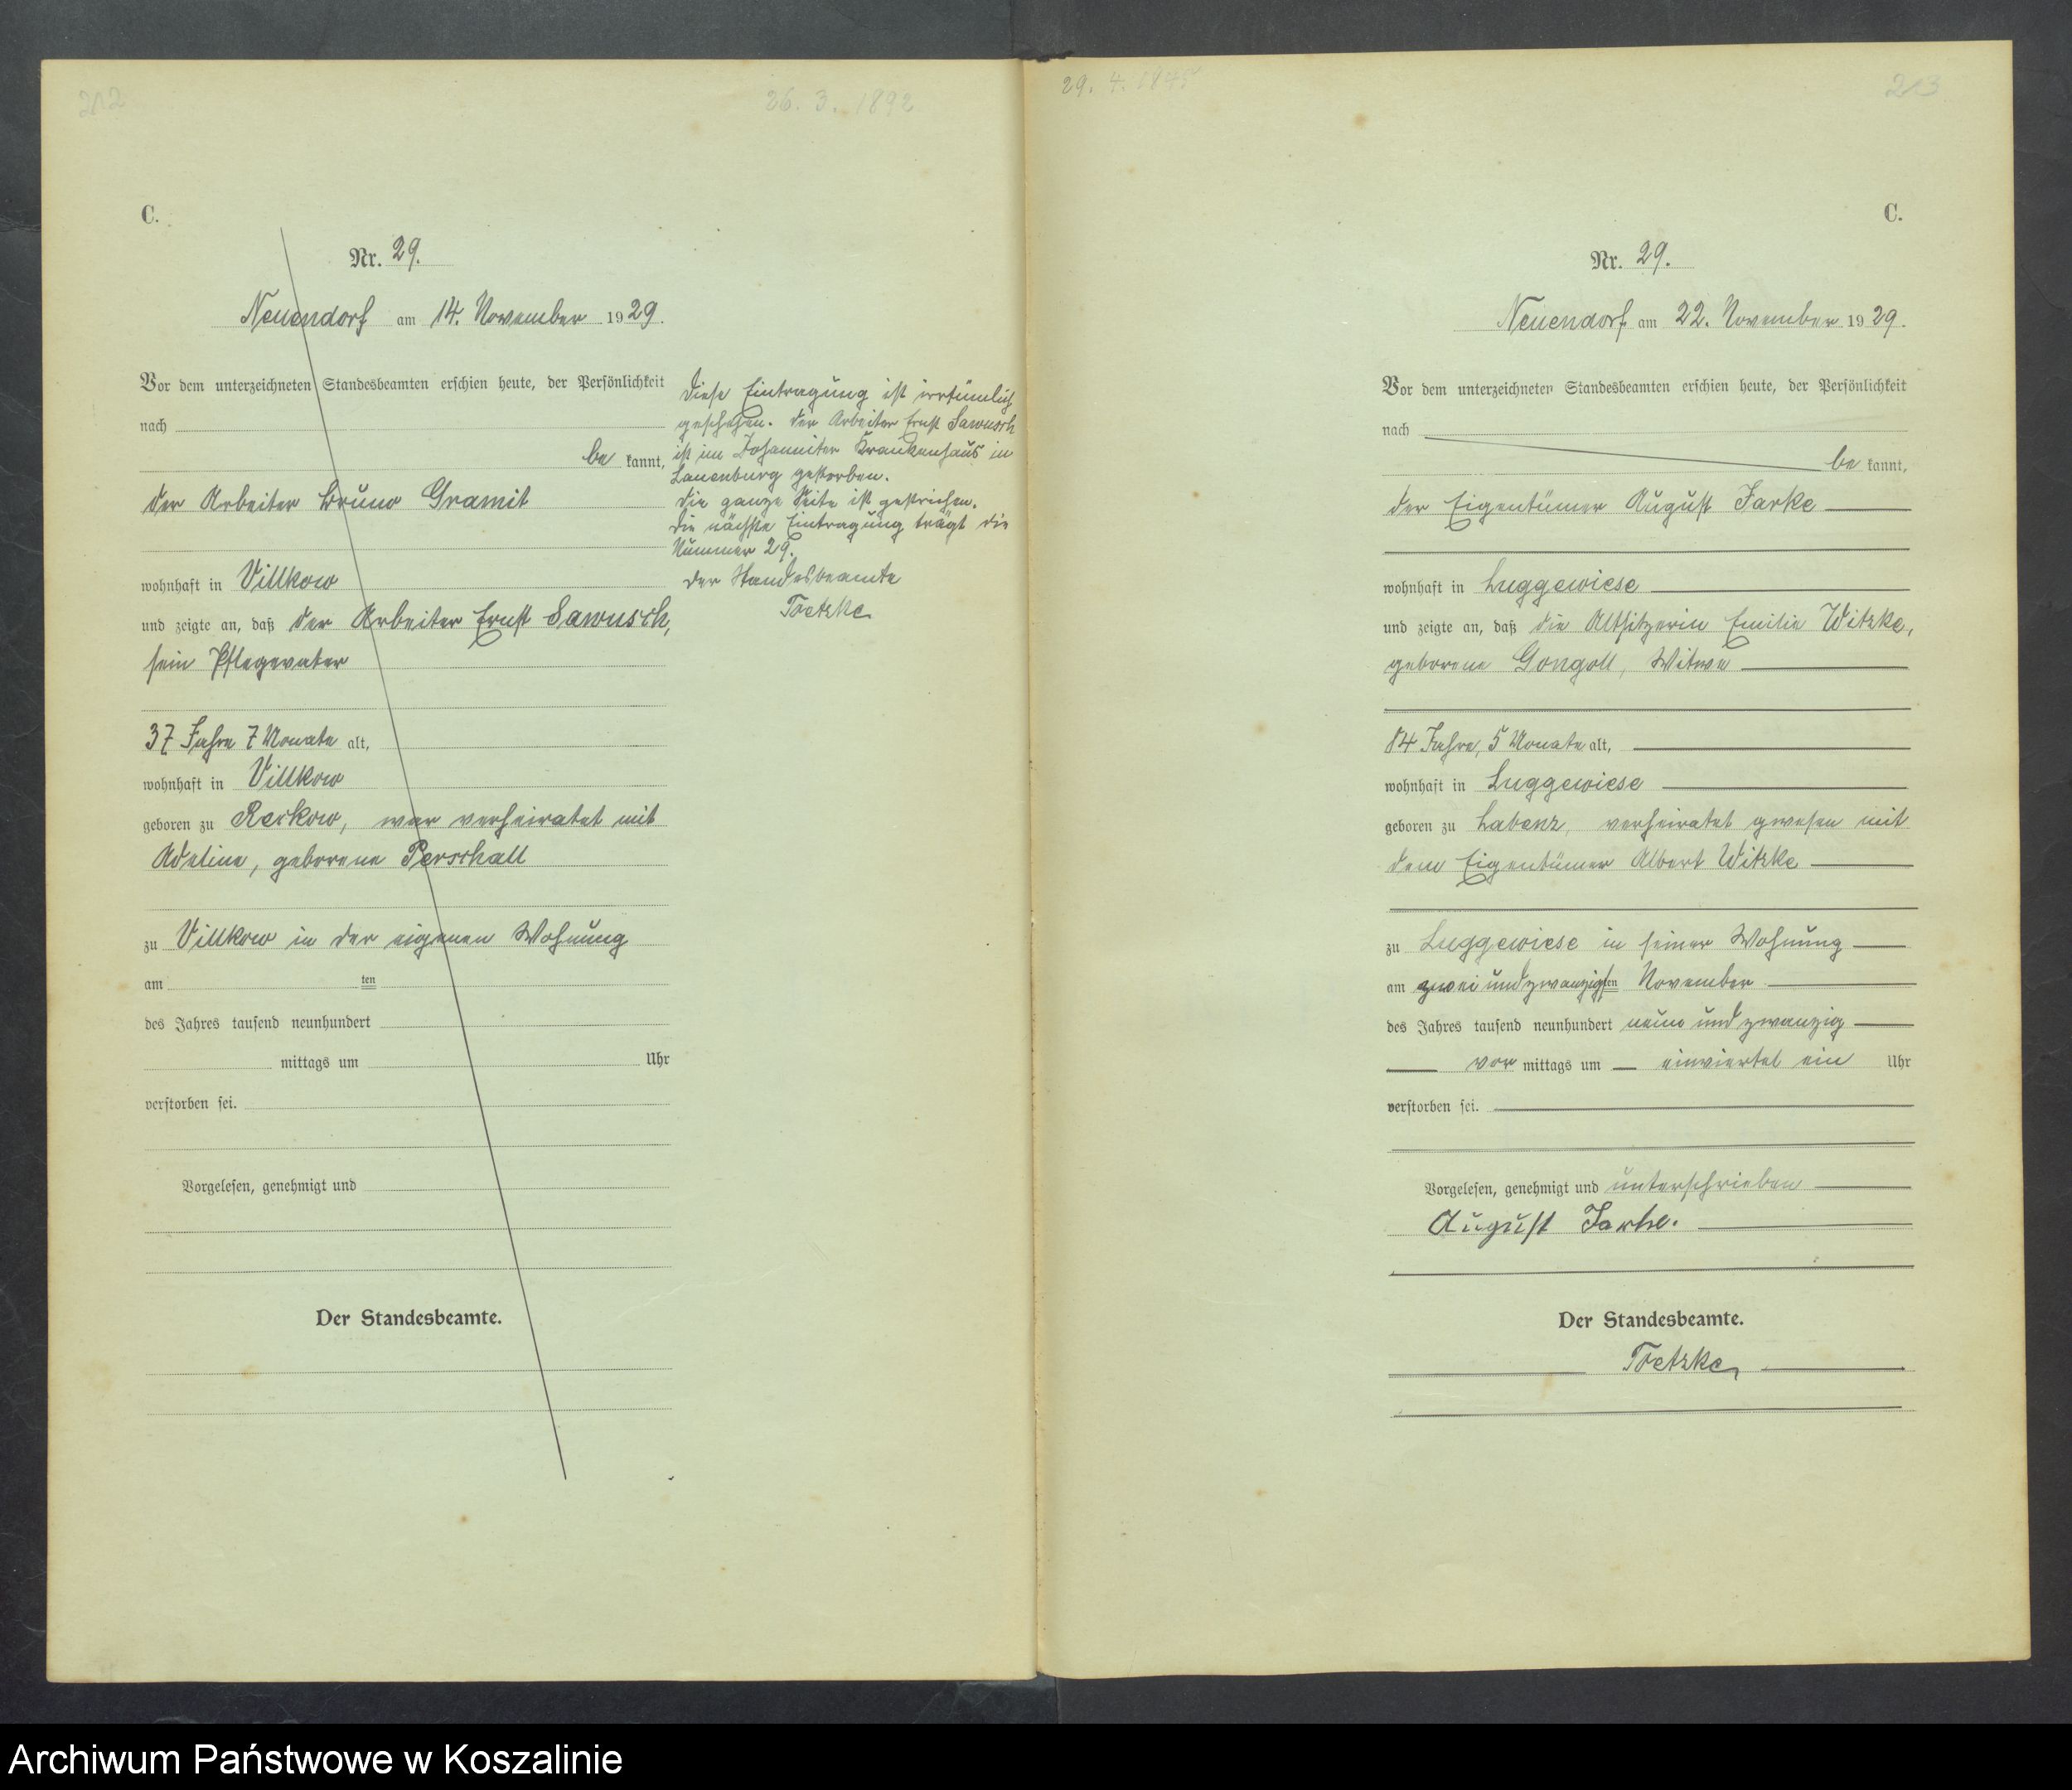 212
26. 3. 1892
C.
Nr. 29.
Neuendorf am 14. November 1929.
Vor dem unterzeichneten Standesbeamten erschien heute, der Persönlichkeit
nach
be kannt,
der Arbeiter Bruno Gramit
wohnhaft in Villkow
und zeigte an, daß der Arbeiter Ernst Sawusch,
sein Pflegevater
37 Jahre 7 Monate alt,
wohnhaft in Villkow
geboren zu Reckow, war verheiratet mit
Adeline, geborene Perschall
zu Villkow in der eigenen Wohnung
am ten
des Jahres tausend neunhundert
mittags um Uhr
verstorben sei.
Vorgelesen, genehmigt und
Der Standesbeamte.
Diese Eintragung ist irrtümlich
geschehen. Der Arbeiter Ernst Sawusch
ist im Johanniter Krankenhaus in
Lauenburg gestorben.
Die ganze Seite ist gestrichen.
Die nächste Eintragung trägt die
Nummer 29.
Der Standesbeamte
Toetzke
29. 4. 1845
213
C.
Nr. 29.
Neuendorf am 22. November 1929.
Vor dem unterzeichneten Standesbeamten erschien heute, der Persönlichkeit
nach
be kannt,
der Eigentümer August Jarke
wohnhaft in Luggewiese
und zeigte an, daß die Altsitzerin Emilie Witzke,
geborene Gongoll, Witwe
84 Jahre, 5 Monate alt,
wohnhaft in Luggewiese
geboren zu Labenz, verheiratet gewesen mit
dem Eigentümer Albert Witzke
zu Luggewiese in seiner Wohnung
am zwei und zwanzigsten November
des Jahres tausend neunhundert neun und zwanzig
vor mittags um einviertel ein Uhr
verstorben sei.
Vorgelesen, genehmigt und unterschrieben
August Jarke.
Der Standesbeamte.
Toetzke
Archiwum Państwowe w Koszalinie